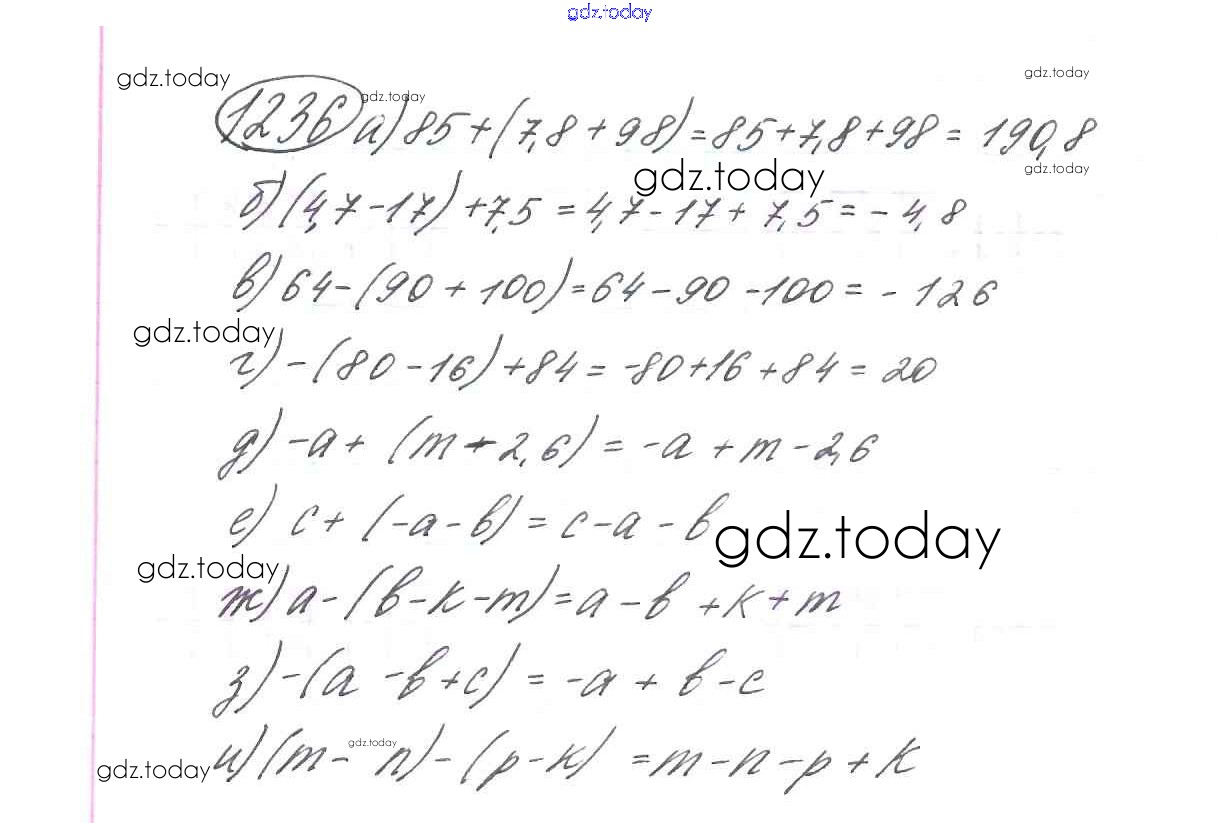 gdz.today
gdz.today gdz.today
gdz.today
1236 а) 85+(7,8+98)=85+7,8+98=190,8
gdz.today gdz.today
б) (4,7-17)+7,5=4,7-17+7,5=-4,8
в) 64-(90+100)=64-90-100=-126
gdz.today
г) -(80-16)+84=-80+16+84=20
д) -a+(m-2,6)=-a+m-2,6
е) c+(-a-b)=c-a-b
gdz.today
gdz.today
ж) a-(b-k-m)=a-b+k+m
з) -(a-b+c)=-a+b-c
gdz.today
и) (m-n)-(p-k)=m-n-p+k
gdz.today